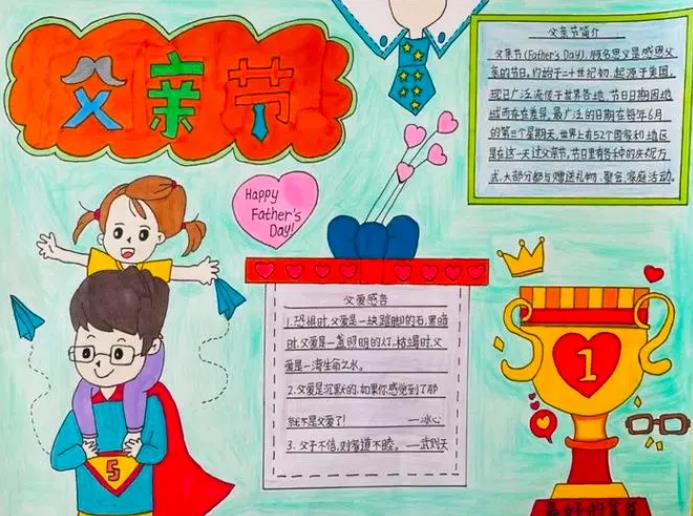 父亲节
父亲节简介
父亲节(Father's Day),顾名思义是感恩父
亲的节日,约始于二十世纪初,起源于美国,
现已广泛流传于世界各地,节日日期因地
域而存在差异,最广泛的日期在每年6月
的第三个星期天,世界上有52个国家和地区
是在这一天过父亲节,节日里有各种的庆祝方
式,大部分都与赠送礼物、聚会、家庭活动。
Happy
Father's
Day!
父爱感言
1.恐惧时,父爱是一块踏脚的石,黑暗
时,父爱是一盏照明的灯,枯竭时,父
爱是一湾生命之水。
2.父爱是沉默的,如果你感觉到了那
就不是父爱了! —冰心
3.父子不信,则家道不睦。—武则天
1
S